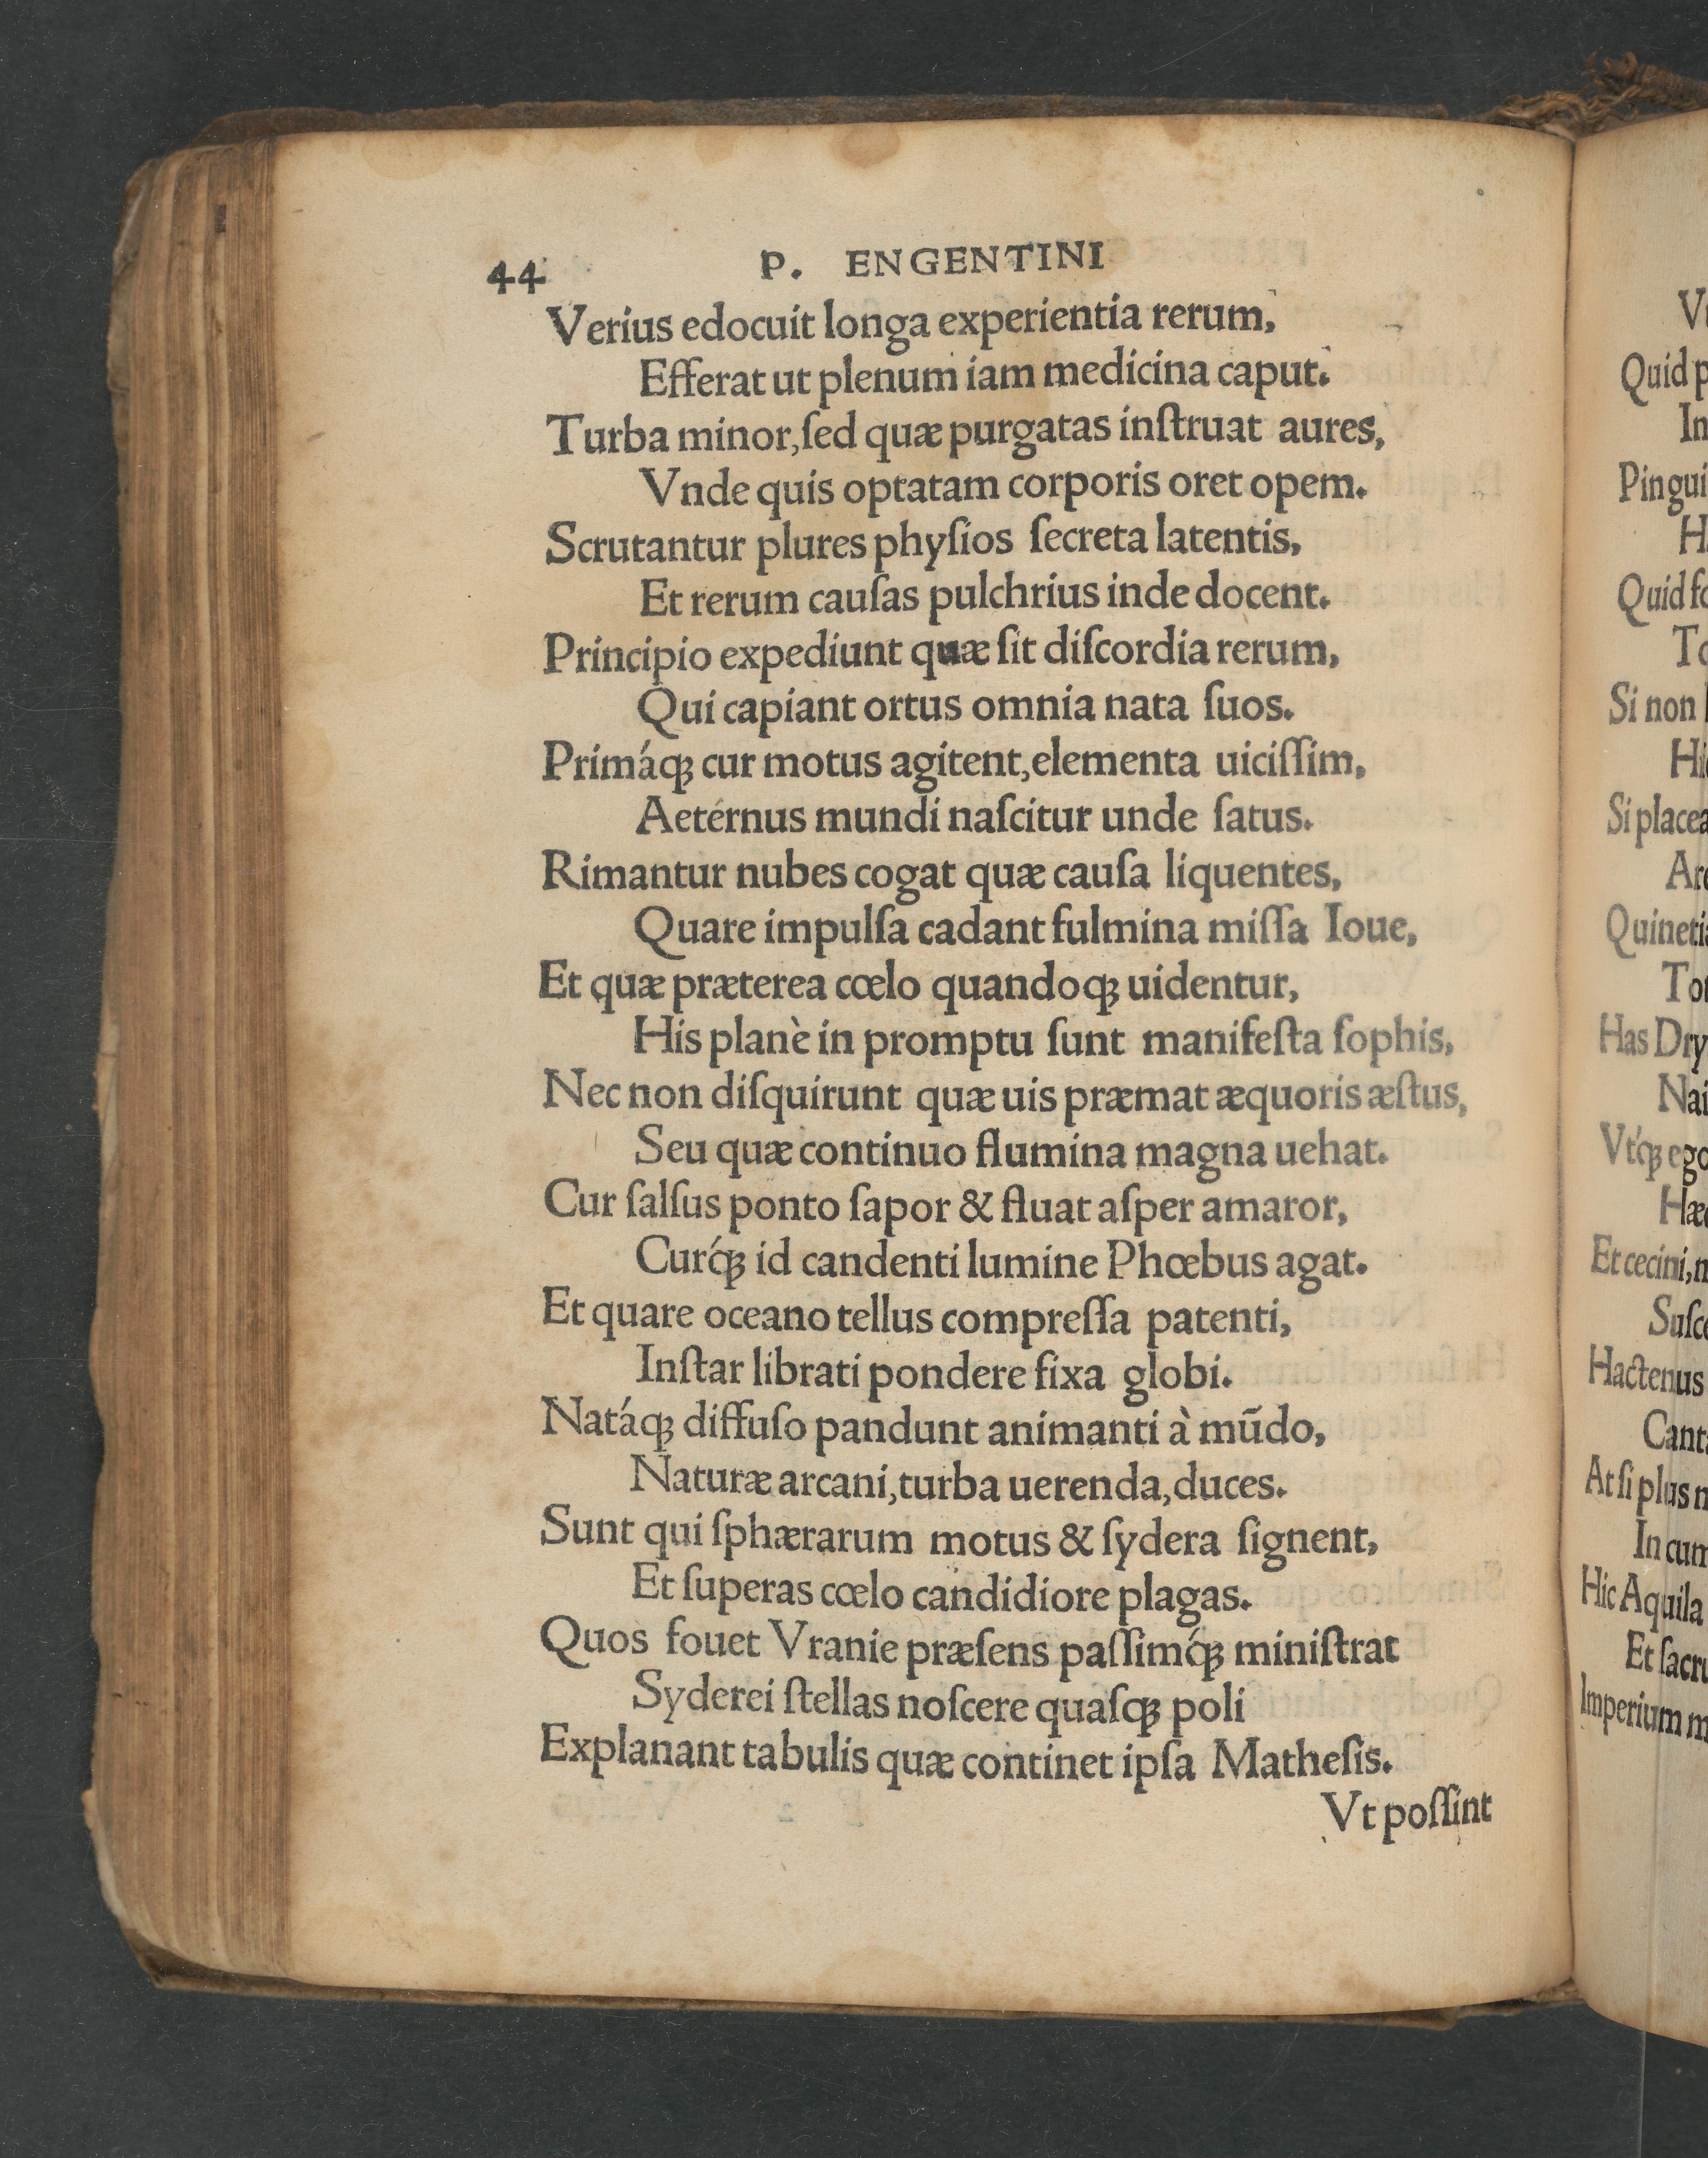 44 P. ENGENTINI
Verius edocuit longa experientia rerum,
Efferat ut plenum iam medicina caput.
Turba minor, ſed quæ purgatas inſtruat aures,
Vnde quis optatam corporis oret opem.
Scrutantur plures phyſios ſecreta latentis,
Et rerum cauſas pulchrius inde docent.
Principio expediunt quæ ſit diſcordia rerum,
Qui capiant ortus omnia nata ſuos.
Primáqꝫ cur motus agitent, elementa uiciſſim,
Aetérnus mundi naſcitur unde ſatus.
Rimantur nubes cogat quæ cauſa liquentes,
Quare impulſa cadant fulmina miſſa Ioue,
Et quæ præterea cœlo quandoqꝫ uidentur,
His planè in promptu ſunt manifeſta ſophis,
Nec non diſquirunt quæ uis præmat æquoris æſtus,
Seu quæ continuo flumina magna uehat.
Cur ſalſus ponto ſapor & fluat aſper amaror,
Curq́ꝫ id candenti lumine Phœbus agat.
Et quare oceano tellus compreſſa patenti,
Inſtar librati pondere fixa globi.
Natáqꝫ diffuſo pandunt animanti à mūdo,
Naturæ arcani, turba uerenda, duces.
Sunt qui ſphærarum motus & ſydera ſignent,
Et ſuperas cœlo candidiore plagas.
Quos fouet Vranie præſens paſſimq́ꝫ miniſtrat
Syderei ſtellas noſcere quaſqꝫ poli
Explanant tabulis quæ continet ipſa Matheſis.
Vt poſſint
Quid
In
Si non
Has
Et cecini,
Hactenus
At ſi plus
In
Hic Aquila
Et
Imperium